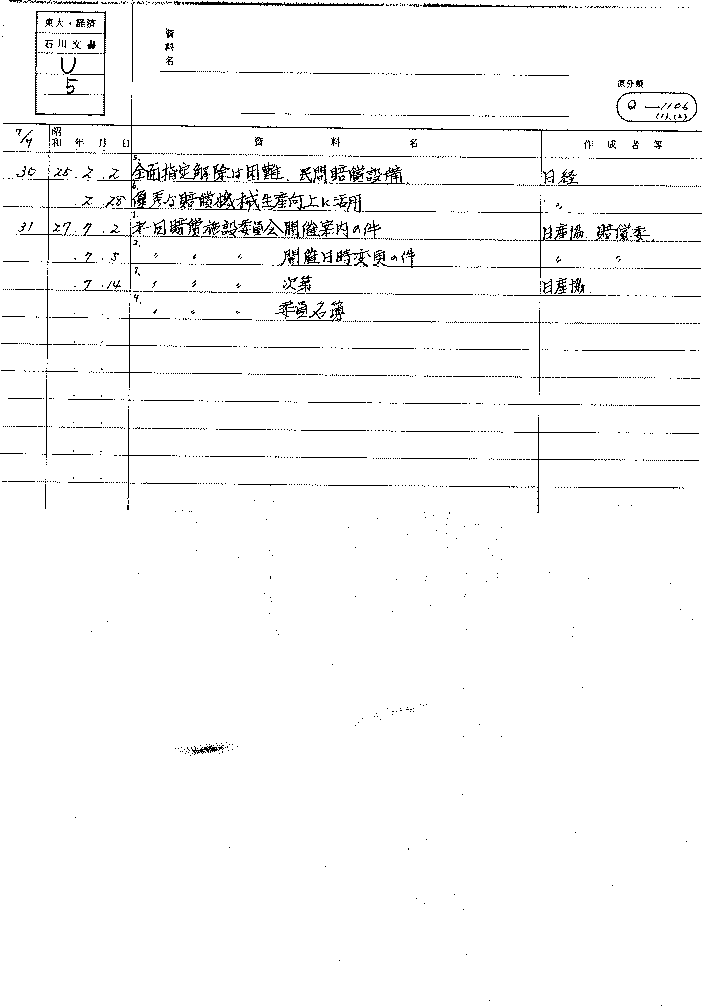 東大・経済
石川文書
U
5
資料名
原分類
Q-1106
(1).(2)
7/4 昭和 年 月 日 資料名 作成者等
30 25. 2. 2 5. 全面指定解除は困難、民間賠償設備 日経
2. 28 6. 優秀な賠償機械生産向上に活用 〃
31 27 7. 2 1. 賠償施設委員会開催案内の件 日産協 賠償委.
. 7. 5 2. 〃 〃 〃 開催日時変更の件 〃 〃
. 7. 14 3. 〃 〃 〃 次第 日産協
4. 〃 〃 〃 委員名簿